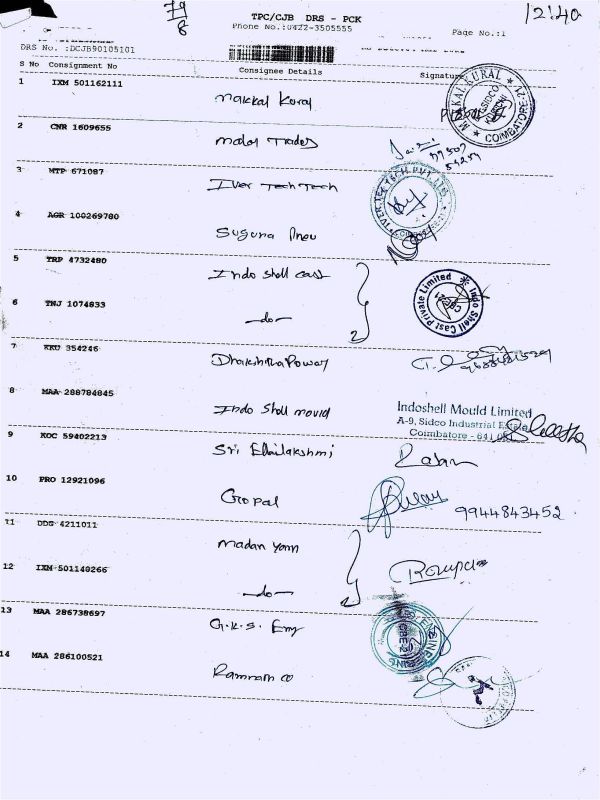 79
8
12:40
TPC/CJB DRS - PCK
Phone No.:0422-3505555
Page No.:1
DRS No. :DCJB90105101
S No Consignment No Consignee Details Signature
1 IXM 501162111 Makkal Kural
MAKKAL KURAL COIMBATORE-21
2 CNR 1609655 Malar Traders
3 MTP 671087 Iver Tech Tech
4 AGR 100269780 Suguna Pneu
5 TRP 4732480 Indo Shell Cast
Indo Shell Cast Private Limited
6 TNJ 1074833 -do-
7 KKU 354246 Dhakshitha Power
8 MAA 288784845 Indo Shell mould
Indoshell Mould Limited
A-9, Sidco Industrial Estate
Coimbatore - 641 021
9 KOC 59402213 Sri Ellailakshmi Rajan
10 PRO 12921096 Gopal 9944843452
11 DDS 4211011 Madan Yarn
12 IXM 501140266 -do-
13 MAA 286738697 G.K.S. Eng
14 MAA 286100521 Ramram co